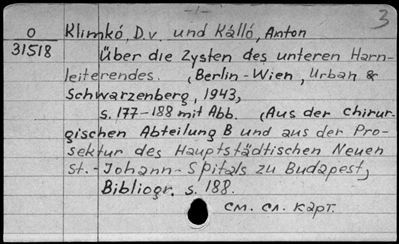 -1-
3
O
31518
Klimkó, D.v. und Kálló, Anton
Über die Zysten des unteren Harn-
leiterendes. (Berlin-Wien, Urban &
Schwarzenberg, 1943,
s. 177-188 mit Abb. (Aus der chirur-
gischen Abteilung B und aus der Pro-
sektur des Hauptstädtischen Neuen
St.-Johann-Spitals zu Budapest,
Bibliogr. s. 188.
см. сл. карт.